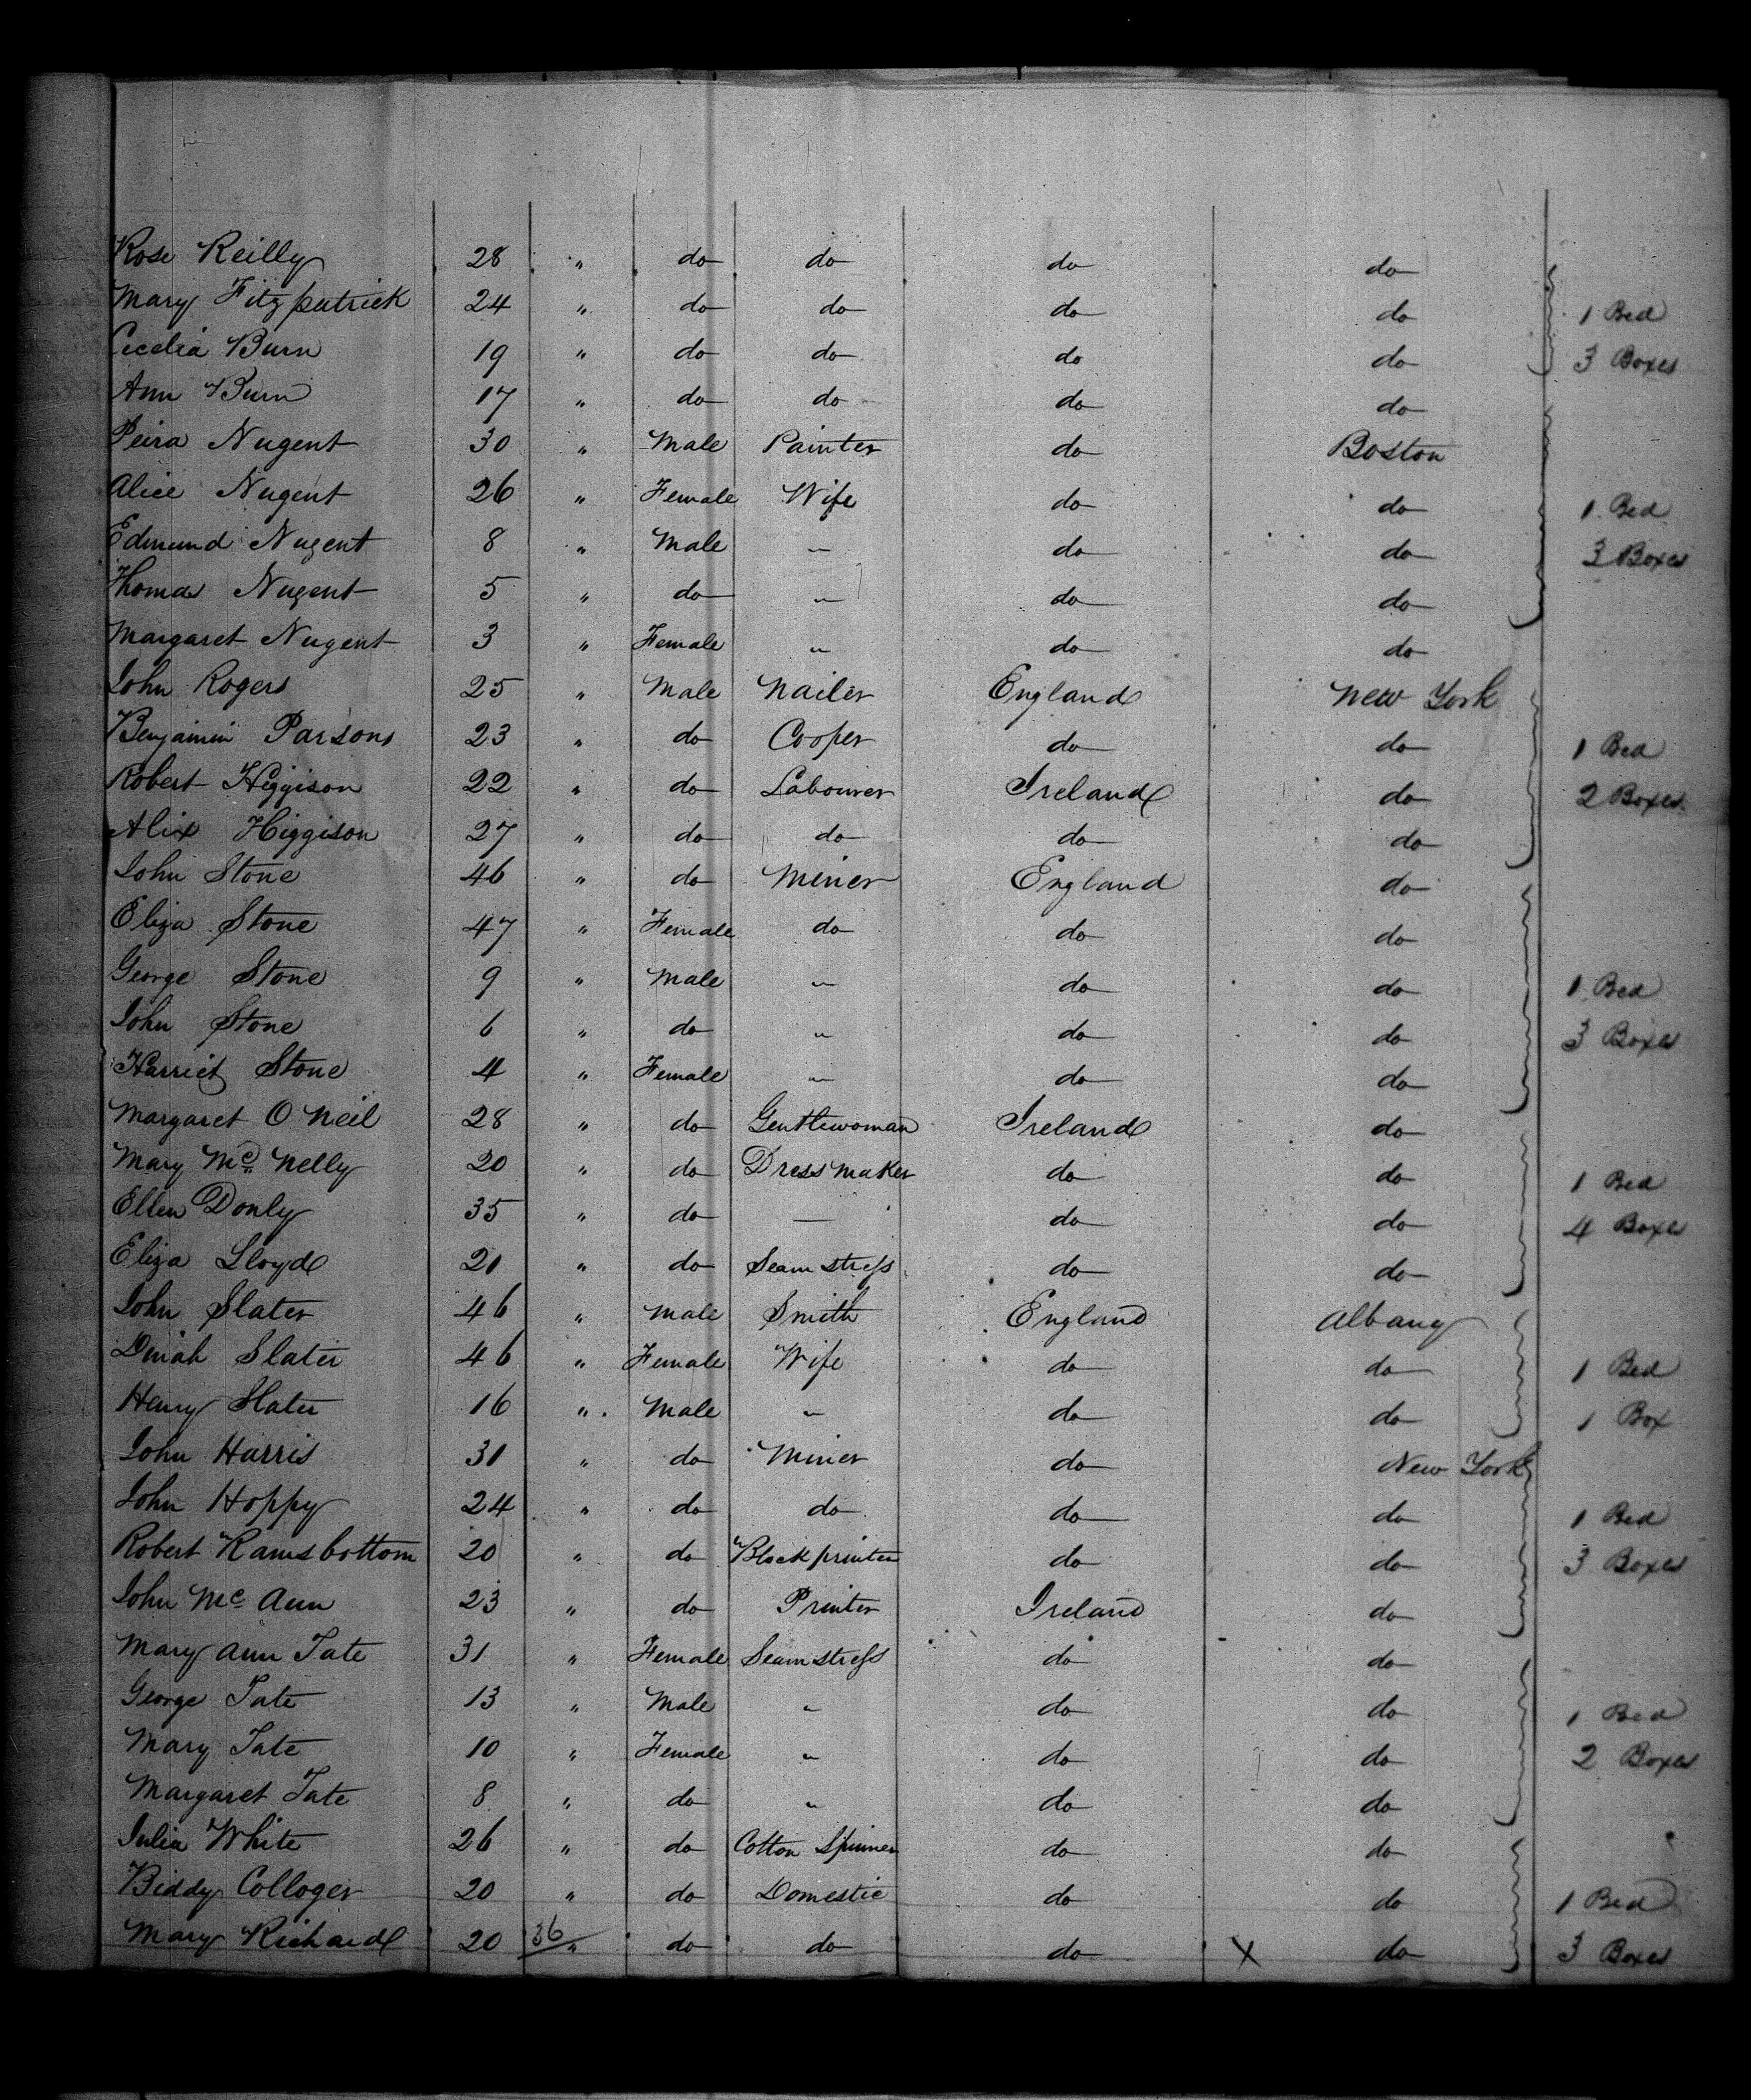 Rose Reilly 28 " do do do do
Mary Fitzpatrick 24 " do do do do 1 Bed
Cecelia Burn 19 " do do do do 3 Boxes
Ann Burn 17 " do do do do
Peira Nugent 30 " Male Painter do Boston
Alice Nugent 26 " Female Wife do do 1 Bed
Edmund Nugent 8 " Male " do do 3 Boxes
Thomas Nugent 5 " do " do do
Margaret Nugent 3 " Female " do do
John Rogers 25 " Male Nailer England New York
Benjamin Parsons 23 " do Cooper do do 1 Bed
Robert Higgison 22 " do Labourer Ireland do 2 Boxes
Alix Higgison 27 " do do do do
John Stone 46 " do Miner England do
Eliza Stone 47 " Female do do do
George Stone 9 " Male " do do 1 Bed
John Stone 6 " do " do do 3 Boxes
Harriet Stone 4 " Female " do do
Margaret O Neil 28 " do Gentlewoman Ireland do
Mary Mc Nelly 20 " do Dress maker do do 1 Bed
Ellen Donly 35 " do — do do 4 Boxes
Eliza Lloyd 21 " do Seamstress do do
John Slater 46 " Male Smith England Albany
Dinah Slater 46 " Female Wife do do 1 Bed
Henry Slater 16 " Male " do do 1 Box
John Harris 31 " do Miner do New York
John Hoppy 24 " do do do do 1 Bed
Robert Ramsbottom 20 " do Blockprinter do do 3 Boxes
John Mc Ann 23 " do Printer Ireland do
Mary Ann Tate 31 " Female Seamstress do do
George Tate 13 " Male " do do 1 Bed
Mary Tate 10 " Female " do do 2 Boxes
Margaret Tate 8 " do " do do
Julia White 26 " do Cotton Spinner do do
Biddy Colloger 20 " do Domestic do do 1 Bed
Mary Richard 20 36 " do do do X do 3 Boxes